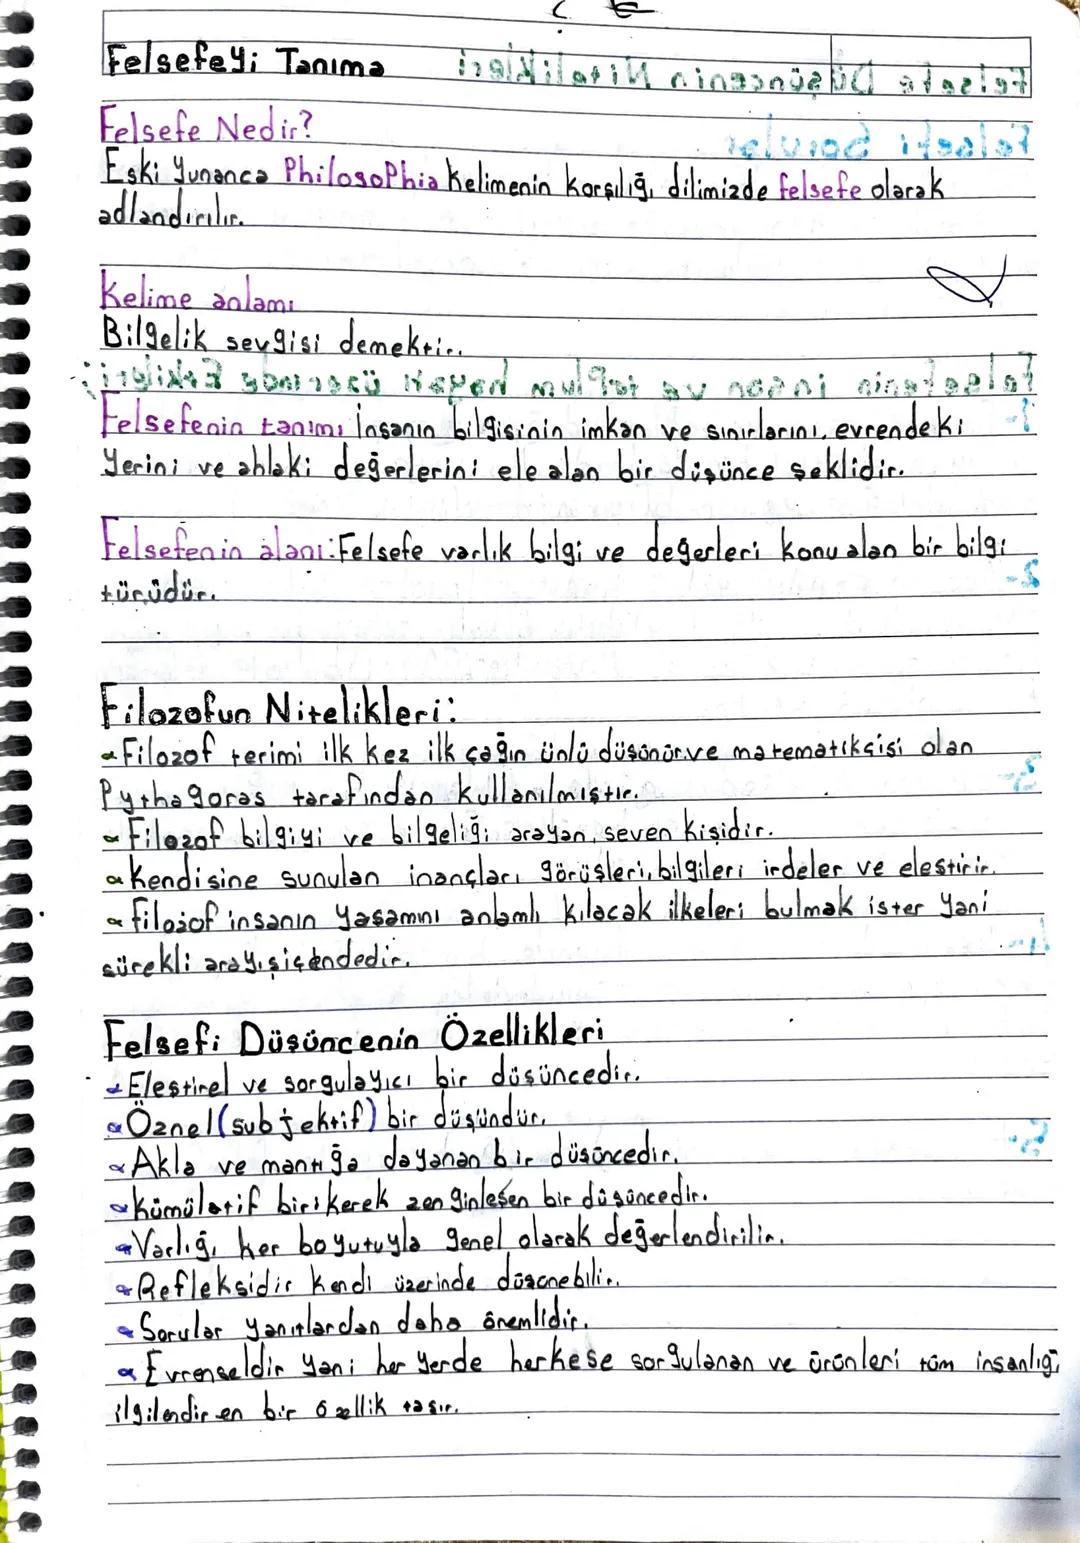 Felsefeyi Tanıma
Felsefe Nedir?
Eski Yunanca PhilosoPhia kelimenin karşılığı dilimizde felsefe olarak
adlandırılır.
Kelime anlamı
Bilgelik sevgisi demektir.
Felsefenin tanımı İnsanın bilgisinin imkan ve sınırlarını, evrendeki
Yerini ve ahlaki değerlerini ele alan bir düşünce şeklidir.
Felsefenin alanı: Felsefe varlık bilgi ve değerleri konu alan bir bilgi
türüdür.
Filozofun Nitelikleri:
Filozof terimi ilk kez ilk çağın ünlü düşünür ve matematikçisi olan
Pythagoras tarafından kullanılmıştır.
Filozof bilgiyi ve bilgeliği arayan, seven kişidir.
Kendisine sunulan inançları görüşleri, bilgileri irdeler ve eleştirir.
Filozof insanın yaşamını anlamlı kılacak ilkeleri bulmak ister yani
sürekli arayış içindedir.
Felsefi Düşüncenin Özellikleri
Eleştirel ve sorgulayıcı bir düşüncedir.
Öznel (subjektif) bir düşündür.
Akla ve mantığa dayanan bir düşüncedir.
Kümülatif birikerek zenginleşen bir düşüncedir.
Varlığı her boyutuyla genel olarak değerlendirilir.
Refleksidir Kendi üzerinde düşünebilir.
Sorular yanıtlardan daha önemlidir.
Evrenseldir Yani her yerde herkese sorgulanan ve ürünleri tüm insanlığı
ilgilendiren bir özellik taşır.